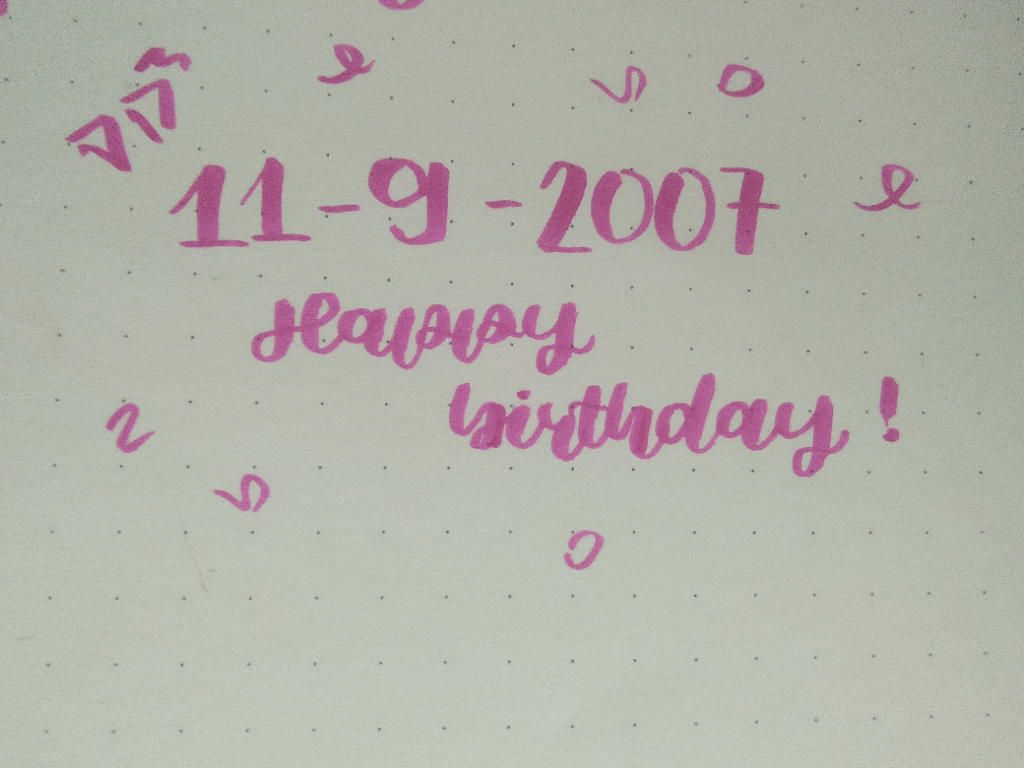 11-9-2007
Happy
birthday!